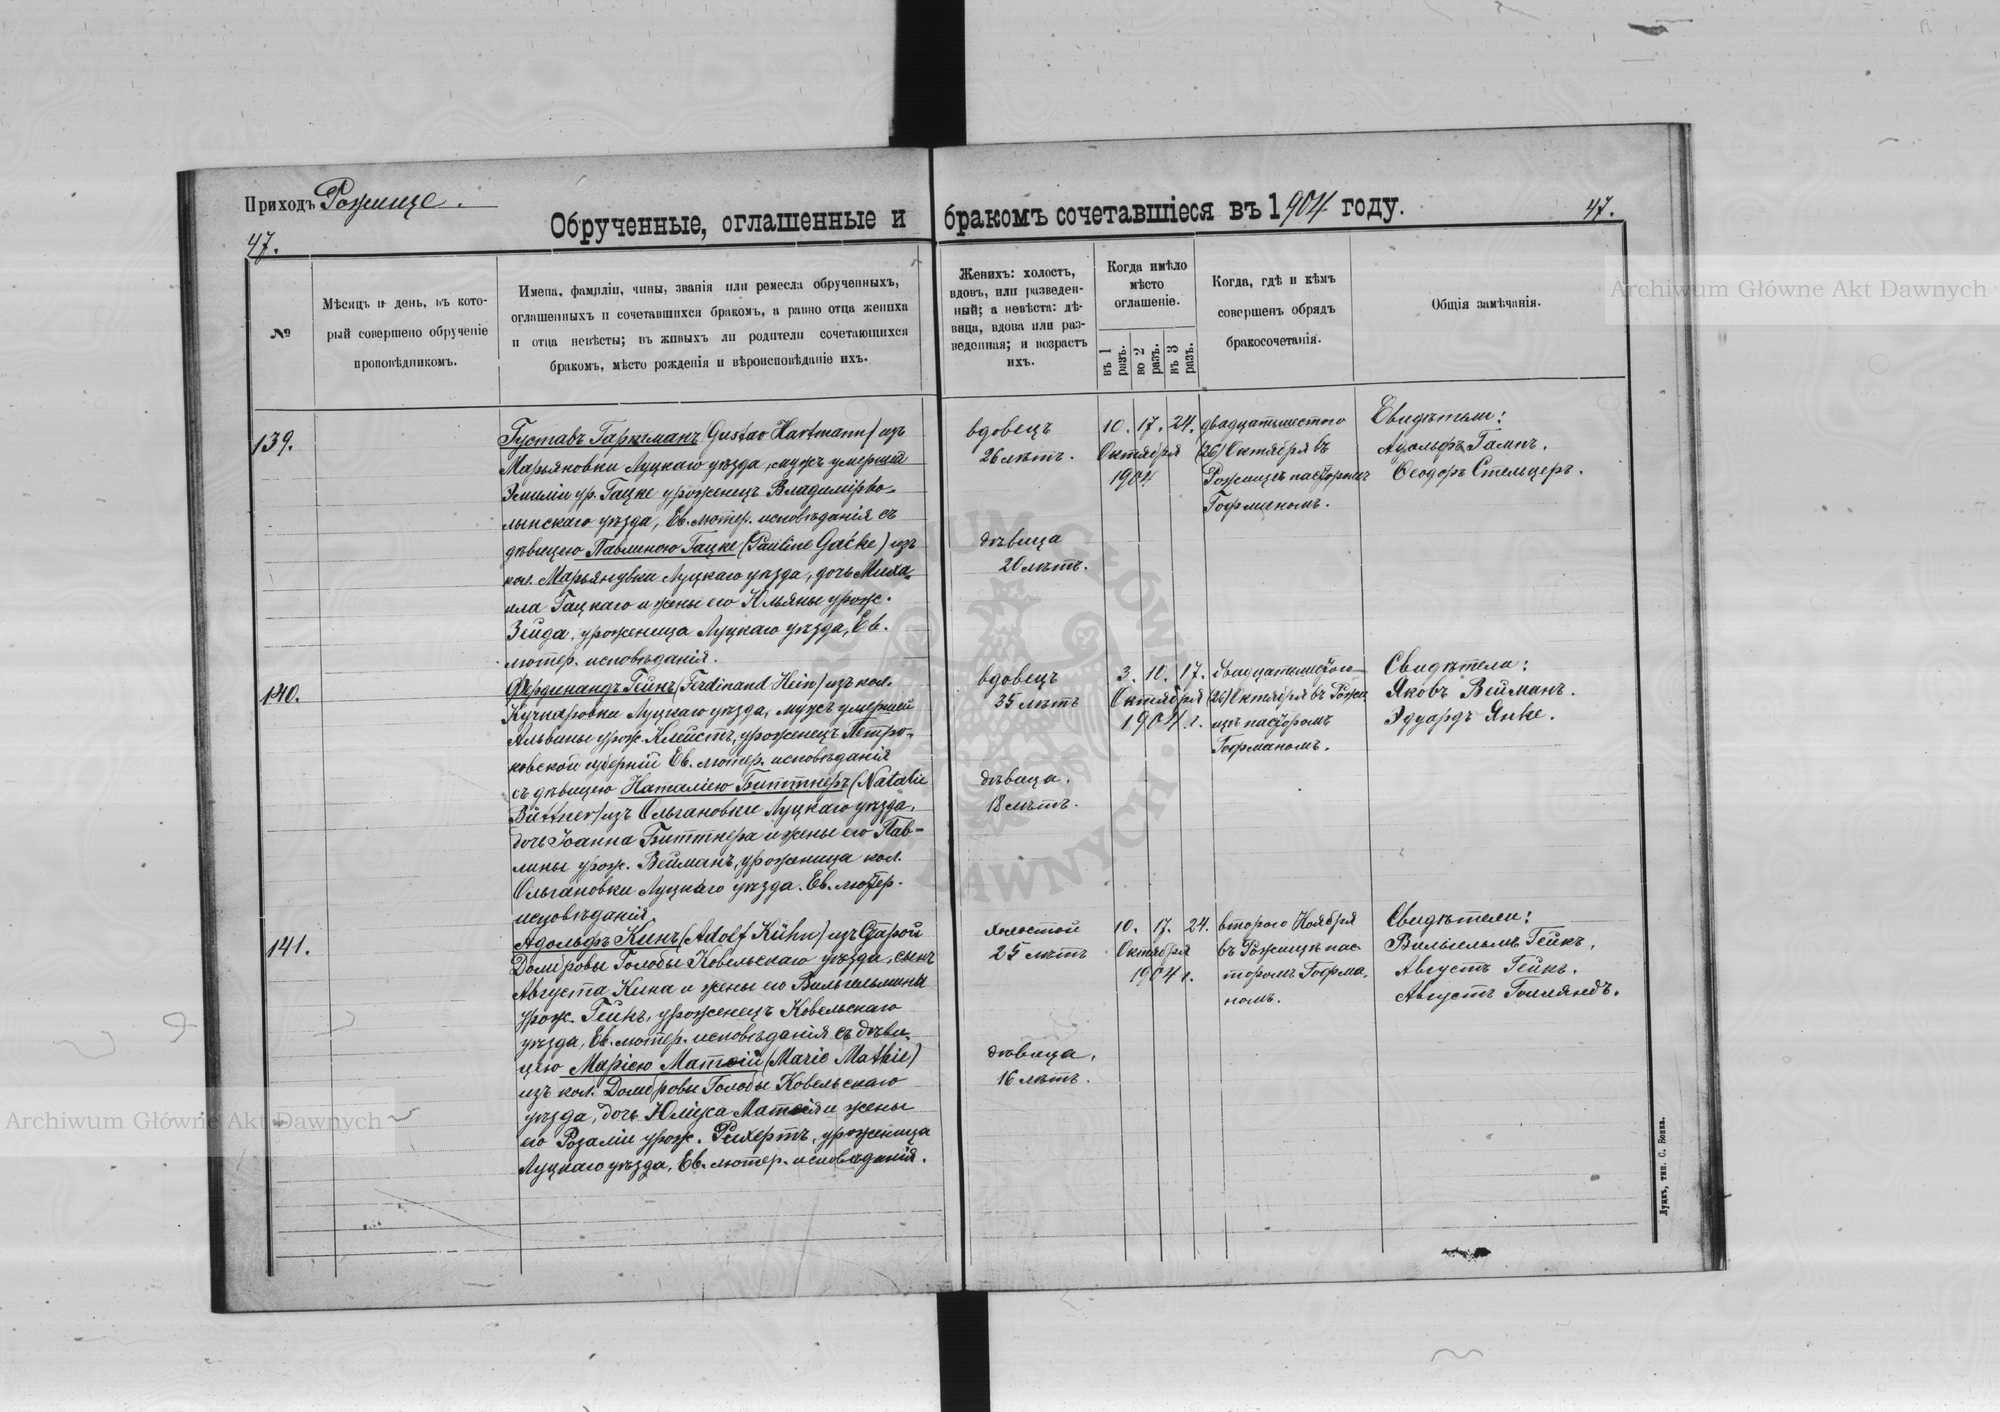 Приходъ Рожище.
47.
Обрученные, оглашенные и бракомъ сочетавшіеся въ 1904 году.
47.
№
Мѣсяцъ и день, въ кото-
рый совершено обрученіе
проповѣдникомъ.
Имена, фамиліи, чины, званія или ремесла обрученныхъ,
оглашенныхъ и сочетавшихся бракомъ, а равно отца жениха
и отца невѣсты; въ живыхъ ли родители сочетающихся
бракомъ, мѣсто рожденія и вѣроисповѣданіе ихъ.
Женихъ: холостъ,
вдовъ, или разведен-
ный; а невѣста: дѣ-
вица, вдова или раз-
веденная; и возрастъ
ихъ.
Когда имѣло
мѣсто
оглашеніе.
въ 1 разъ.
во 2 разъ.
въ 3 разъ.
Когда, гдѣ и кѣмъ
совершенъ обрядъ
бракосочетанія.
Общія замѣчанія.
139.
Густавъ Гартманъ (Gustav Hartmann) изъ
Марьяновки Луцкаго уѣзда, мужъ умершей
Эмиліи ур. Гацке уроженецъ Владимірво-
лынскаго уѣзда, Ев. лютер. исповѣданія съ
дѣвицею Павлиною Гацке (Pauline Gatke) изъ
кол. Марьяновки Луцкаго уѣзда, дочь Миха-
ила Гацкаго и жены его Юльяны урож.
Зейда, уроженица Луцкаго уѣзда, Ев.
лютер. исповѣданія.
вдовецъ
26 лѣтъ.
дѣвица
20 лѣтъ.
10. 17. 24.
Октября
1904
двадцатьшестого
(26) Октября въ
Рожищѣ пасторомъ
Гофманомъ.
Свидѣтели:
Адольфъ Гампъ.
Ѳеодоръ Стельцеръ.
140.
Фердинандъ Гейнъ (Ferdinand Hein) изъ кол.
Кучкаровки Луцкаго уѣзда, мужъ умершей
Альвины урож. Клейстъ, уроженецъ Петро-
ковской губерніи Ев. лютер. исповѣданія
съ дѣвицею Наталіею Биттнеръ (Natalie
Büttner) изъ Ольгановки Луцкаго уѣзда,
дочь Іоанна Биттнера и жены его Пав-
лины урож. Вейманъ, уроженица кол.
Ольгановки Луцкаго уѣзда. Ев. лютер.
исповѣданія.
вдовецъ
35 лѣтъ
дѣвица.
18 лѣтъ.
3. 10. 17.
Октября
1904 г.
двадцатьшестого
(26) Октября въ Рожи-
щѣ пасторомъ
Гофманомъ.
Свидѣтели:
Яковъ Вейманъ.
Эдуардъ Янке.
141.
Адольфъ Кинъ (Adolf Kühn) изъ Старой
Домбровы Голобы Ковельскаго уѣзда, сынъ
Августа Кина и жены его Вильгельмины
урож. Гейнъ, уроженецъ Ковельскаго
уѣзда, Ев. лютер. исповѣданія съ дѣви-
цею Маріею Матвій (Marie Mathie)
изъ кол. Домбровы Голобы Ковельскаго
уѣзда, дочь Юліуса Матвія и жены
его Розаліи урож. Рихертъ, уроженица
Луцкаго уѣзда, Ев. лютер. исповѣданія.
холостой
25 лѣтъ
дѣвица,
16 лѣтъ.
10. 17. 24.
Октября
1904 г.
второго Ноября
въ Рожищѣ пас-
торомъ Гофма-
номъ.
Свидѣтели:
Вильгельмъ Гейнъ,
Августъ Гейнъ.
Августъ Голляндъ.
Луцкъ, тип. С. Бонка.
Archiwum Główne Akt Dawnych
Archiwum Główne Akt Dawnych